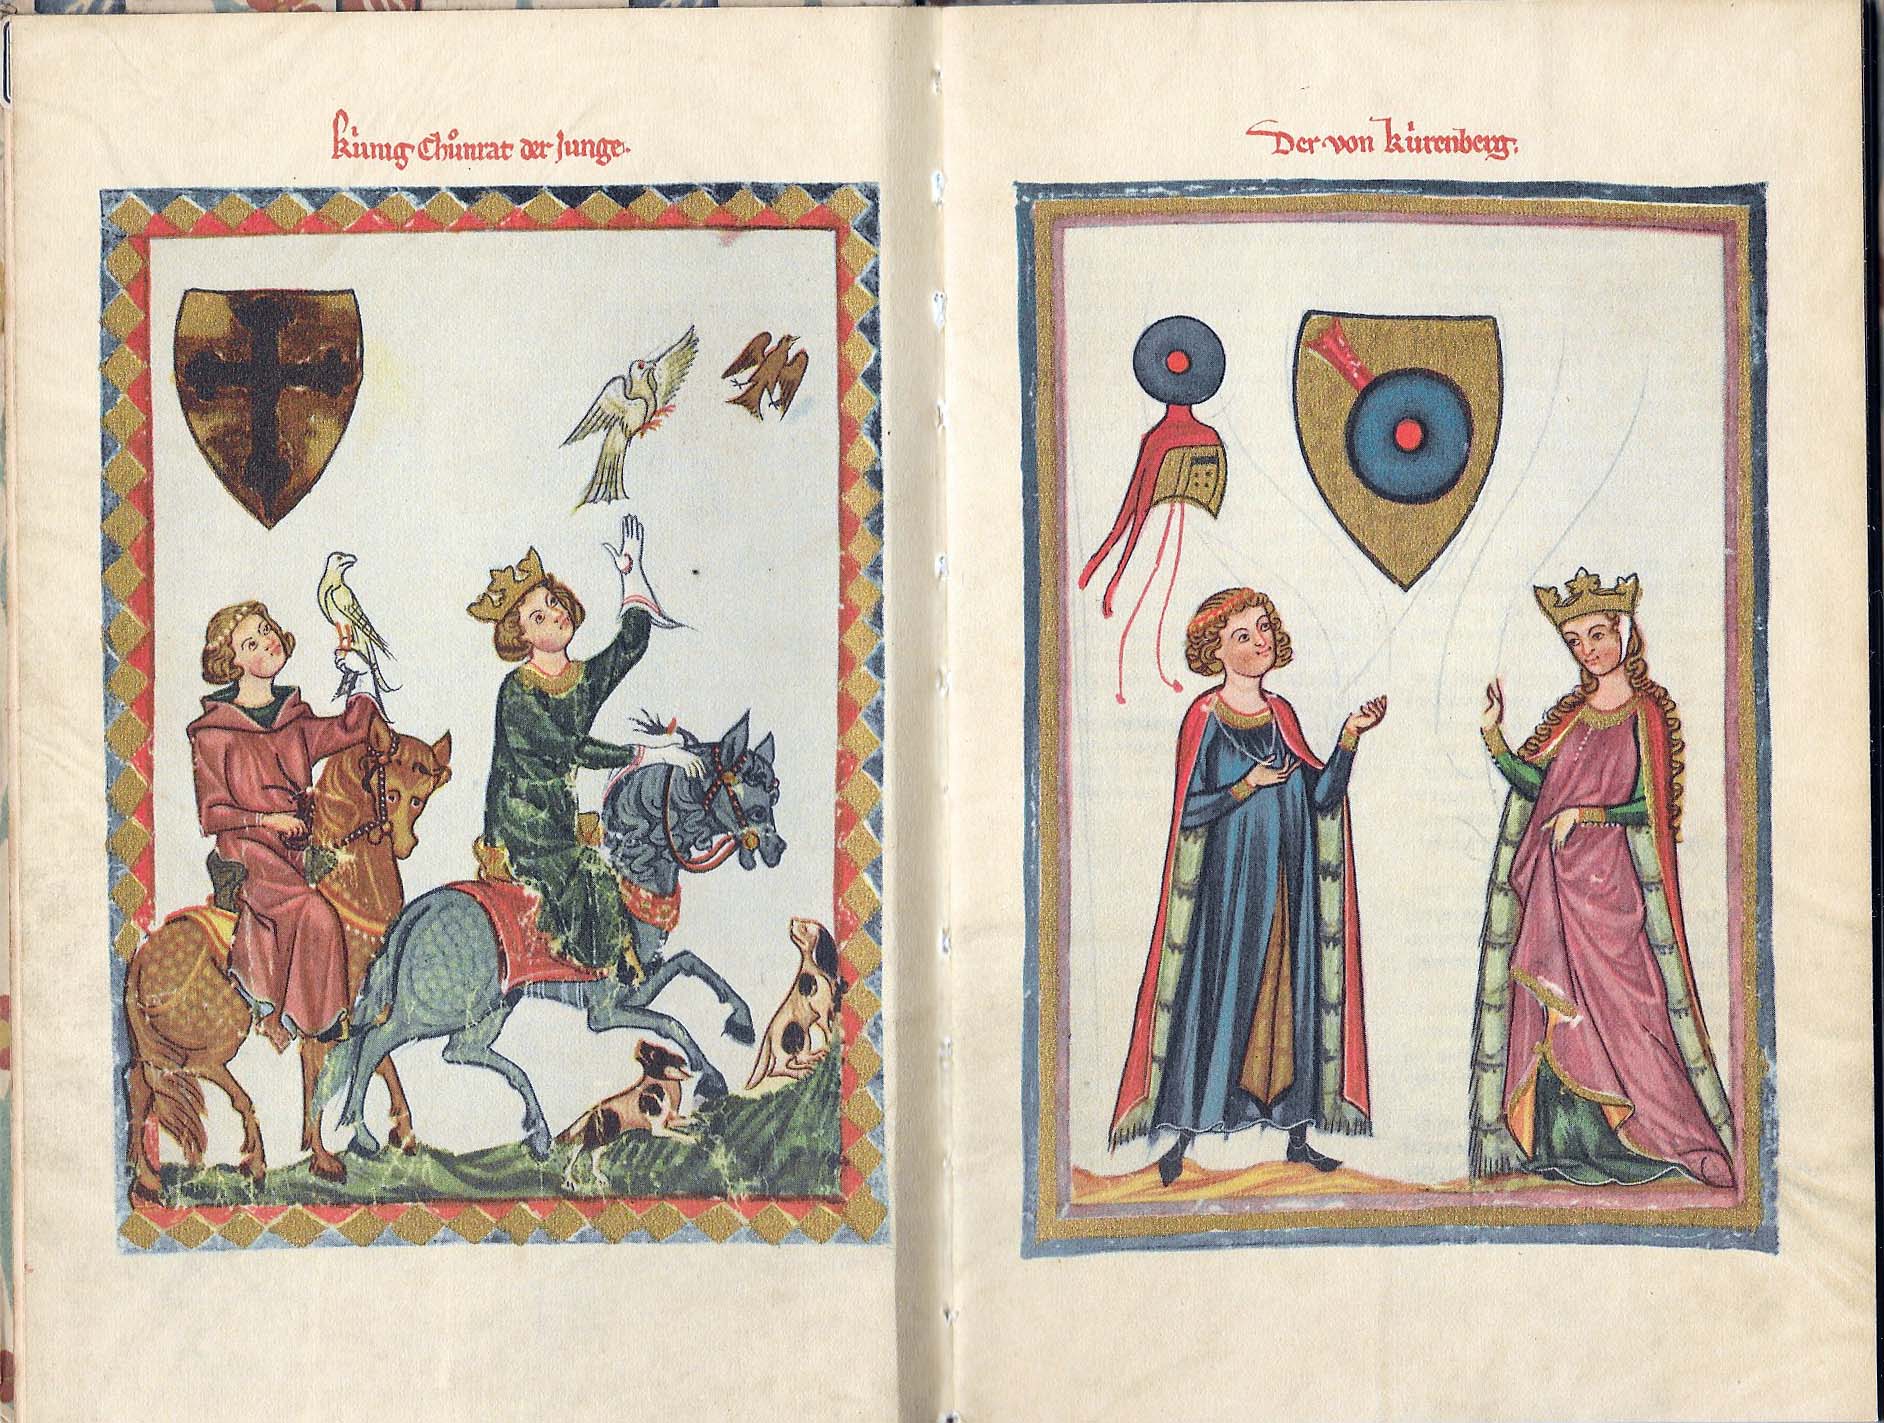 kúnig Chůnrat der Junge.
Der von kúrenberg.